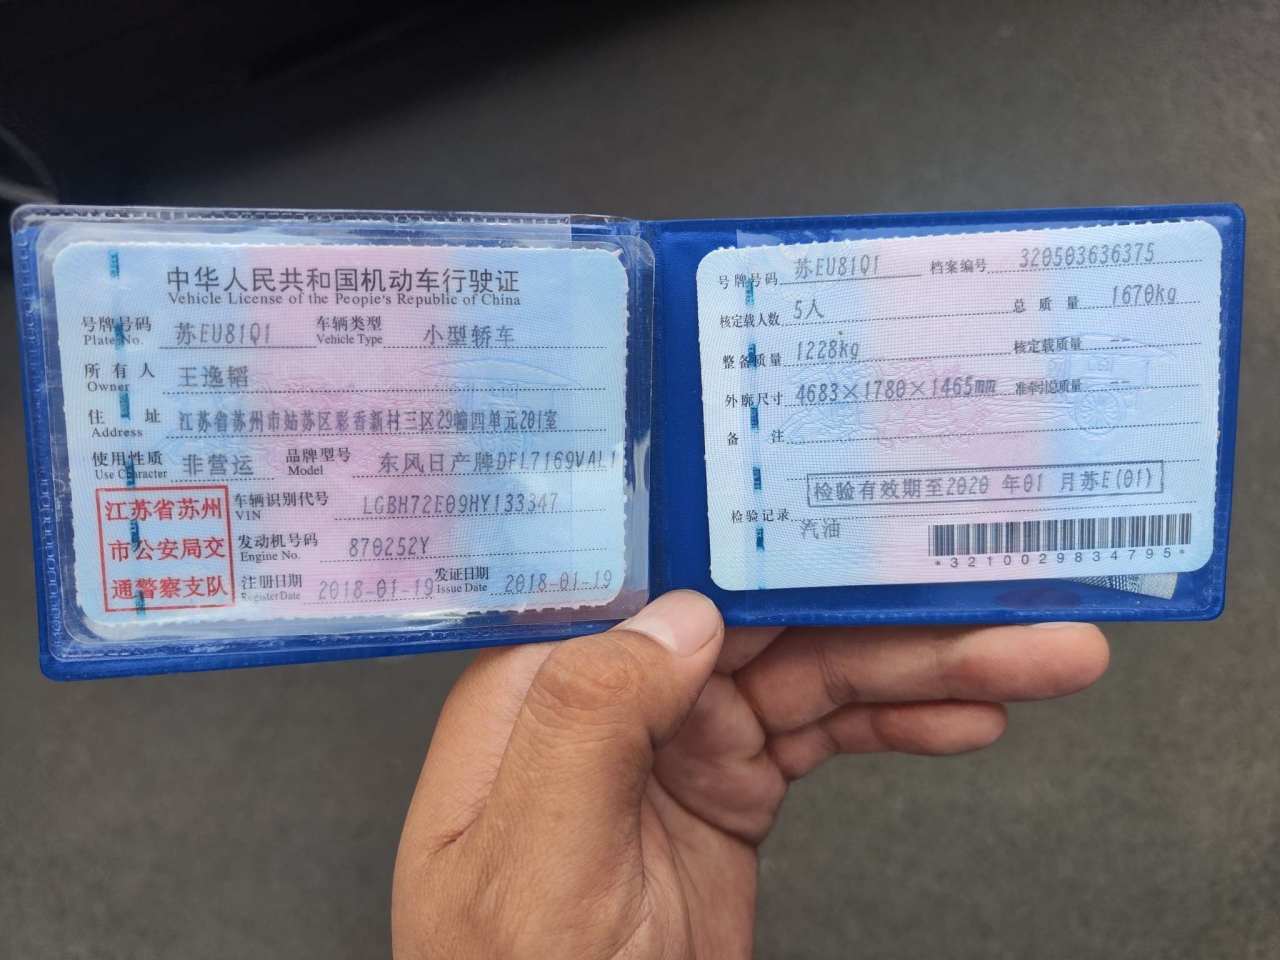 中华人民共和国机动车行驶证
Vehicle License of the People's Republic of China
号牌号码 苏EU81Q1 车辆类型 小型轿车
Plate No. Vehicle Type
所有人 王逸韬
Owner
住址 江苏省苏州市姑苏区彩香新村三区29幢四单元201室
Address
使用性质 非营运 品牌型号 东风日产牌DFL7169VAL1
Use Character Model
江苏省苏州
市公安局交
通警察支队
车辆识别代号 LGBH72E09HY133347
VIN
发动机号码 870252Y
Engine No.
注册日期 2018-01-19 发证日期 2018-01-19
Register Date Issue Date
号牌号码 苏EU81Q1 档案编号 320503636375
核定载人数 5人 总质量 1670kg
整备质量 1228kg 核定载质量 --
外廓尺寸 4683×1780×1465mm 准牵引总质量 --
备注
检验有效期至2020 年01 月苏E(01)
检验记录
汽油
*3210029834795*